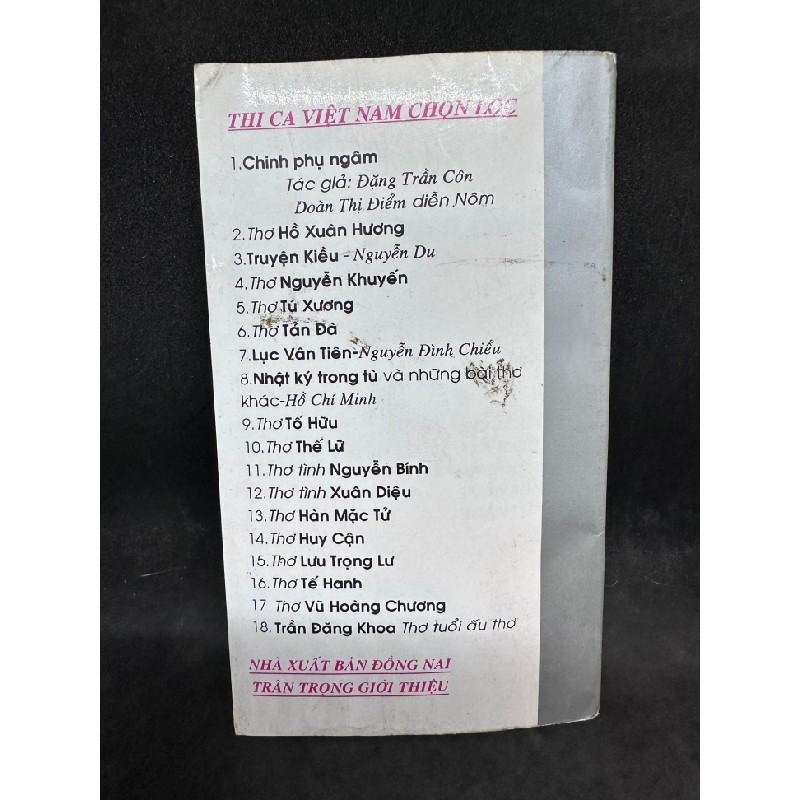 THI CA VIỆT NAM CHỌN LỌC
1.Chinh phụ ngâm
Tác giả: Đặng Trần Côn
Doàn Thị Điểm diễn Nôm
2.Thơ Hồ Xuân Hương
3.Truyện Kiều - Nguyễn Du
4.Thơ Nguyễn Khuyến
5.Thơ Tú Xương
6.Thơ Tản Đà
7.Lục Vân Tiên-Nguyễn Đình Chiểu
8.Nhật ký trong tù và những bài thơ
khác-Hồ Chí Minh
9.Thơ Tố Hữu
10.Thơ Thế Lữ
11.Thơ tình Nguyễn Bính
12.Thơ tình Xuân Diệu
13.Thơ Hàn Mặc Tử
14.Thơ Huy Cận
15.Thơ Lưu Trọng Lư
16.Thơ Tế Hanh
17 Thơ Vũ Hoàng Chương
18.Trần Đăng Khoa Thơ tuổi ấu thơ
NHÀ XUẤT BẢN ĐỒNG NAI
TRÂN TRỌNG GIỚI THIỆU